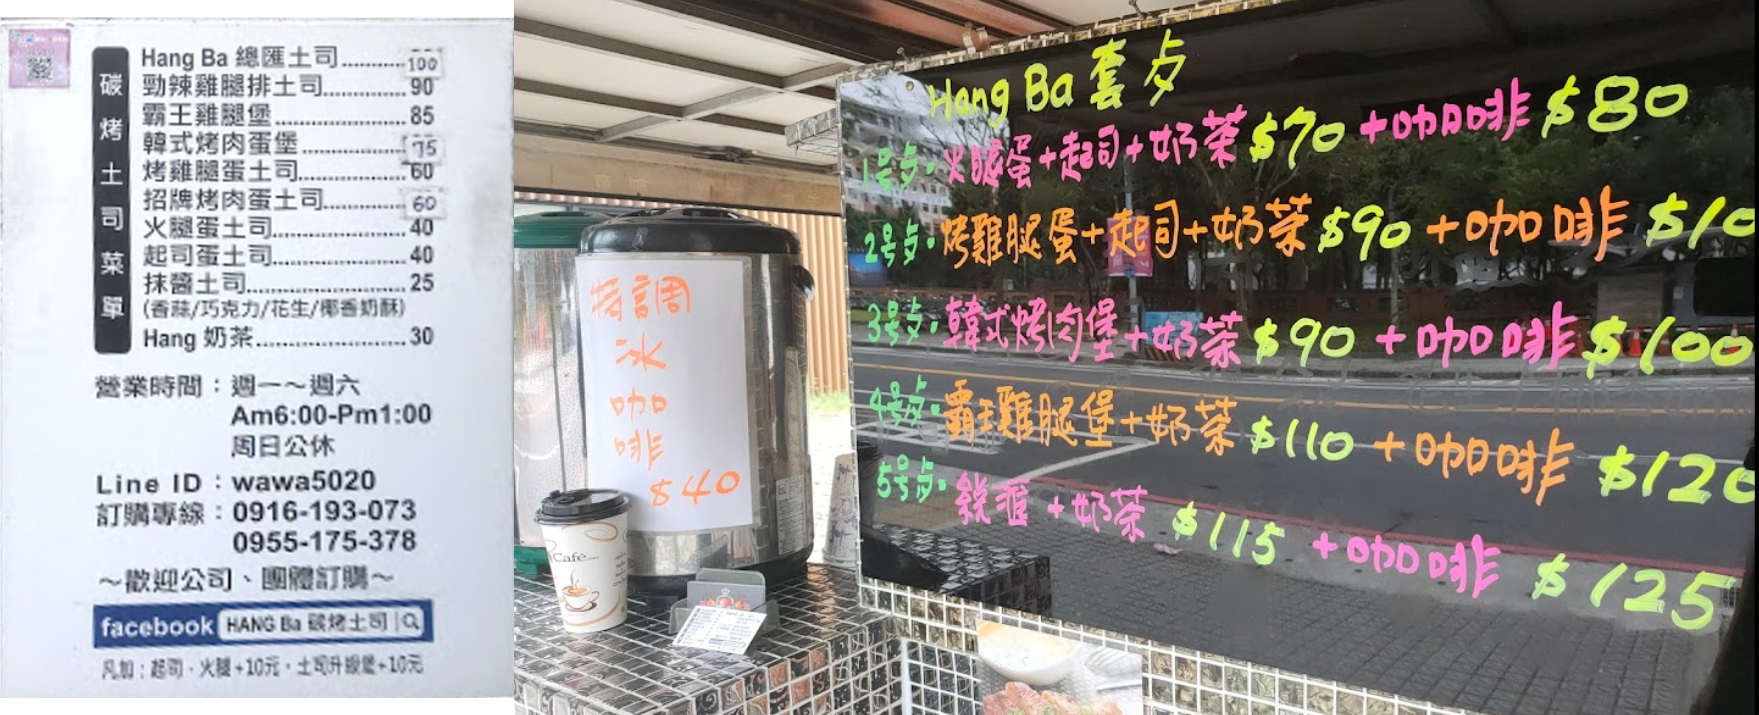 碳烤土司菜單
Hang Ba 總匯土司..........100
勁辣雞腿排土司..........90
霸王雞腿堡..........85
韓式烤肉蛋堡..........75
烤雞腿蛋土司..........60
招牌烤肉蛋土司..........60
火腿蛋土司..........40
起司蛋土司..........40
抹醬土司..........25
(香蒜/巧克力/花生/椰香奶酥)
Hang 奶茶..........30
營業時間：週一～週六
Am6:00-Pm1:00
周日公休
Line ID：wawa5020
訂購專線：0916-193-073
0955-175-378
～歡迎公司、團體訂購～
facebook HANG Ba 碳烤土司
凡加：起司、火腿+10元，土司升級堡+10元
特調
冰
咖
啡
$40
Café
Hang Ba 套歺
1号歺·火腿蛋+起司+奶茶$70+咖啡$80
2号歺·烤雞腿蛋+起司+奶茶$90+咖啡$10
3号歺·韓式烤肉堡+奶茶$90+咖啡$100
4号歺·霸王雞腿堡+奶茶$110+咖啡$120
5号歺·總匯+奶茶$115+咖啡$125